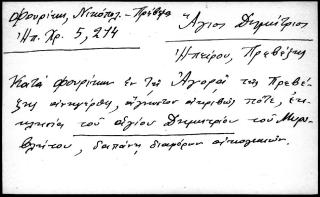 Φουρίκη, Νικόπολ. - Πρέβεζα
Ἠπ. Χρ. 5, 274
Ἅγιος Δημήτριος
Ἠπείρου, Πρεβέζης
Κατὰ Φουρίκην ἐν τῇ Ἀγορᾷ τῆς Πρεβέ-
ζης ἀνηγέρθη, ἄγνωστον ἀκριβῶς πότε, ἐκ-
κλησία τοῦ ἁγίου Δημητρίου τοῦ Μυρο-
βλύτου, δαπάνῃ διαφόρων οἰκογενειῶν.